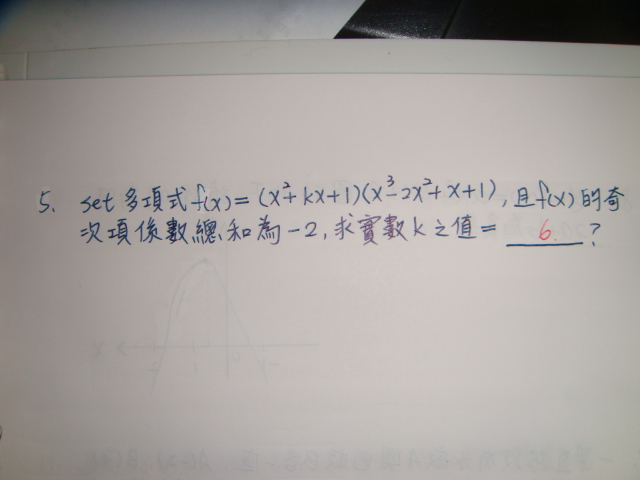 5. set 多項式 f(x) = (x²+kx+1)(x³-2x²+x+1), 且 f(x) 的奇
次項係數總和為 -2, 求實數 k 之值 = 6. ?